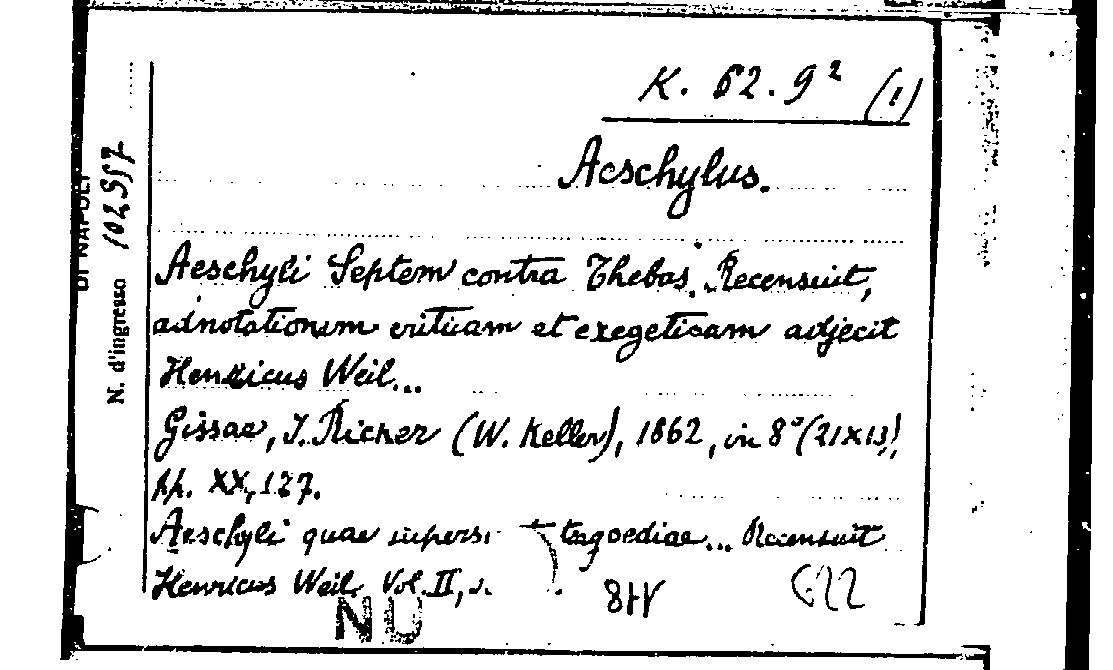 K. 62. 9² (1)
Aeschylus.
DI NAPOLI
N. d'ingresso 102557
Aeschyli Septem contra Thebas. Recensuit,
adnotationem criticam et exegeticam adjecit
Henricus Weil...
Gissae, J. Ricker (W. Keller), 1862, in 8° (21x13),
pp. XX, 127.
Aeschyli quae supers. tragoediae... Recensuit
Henricus Weil. Vol. II,
NU